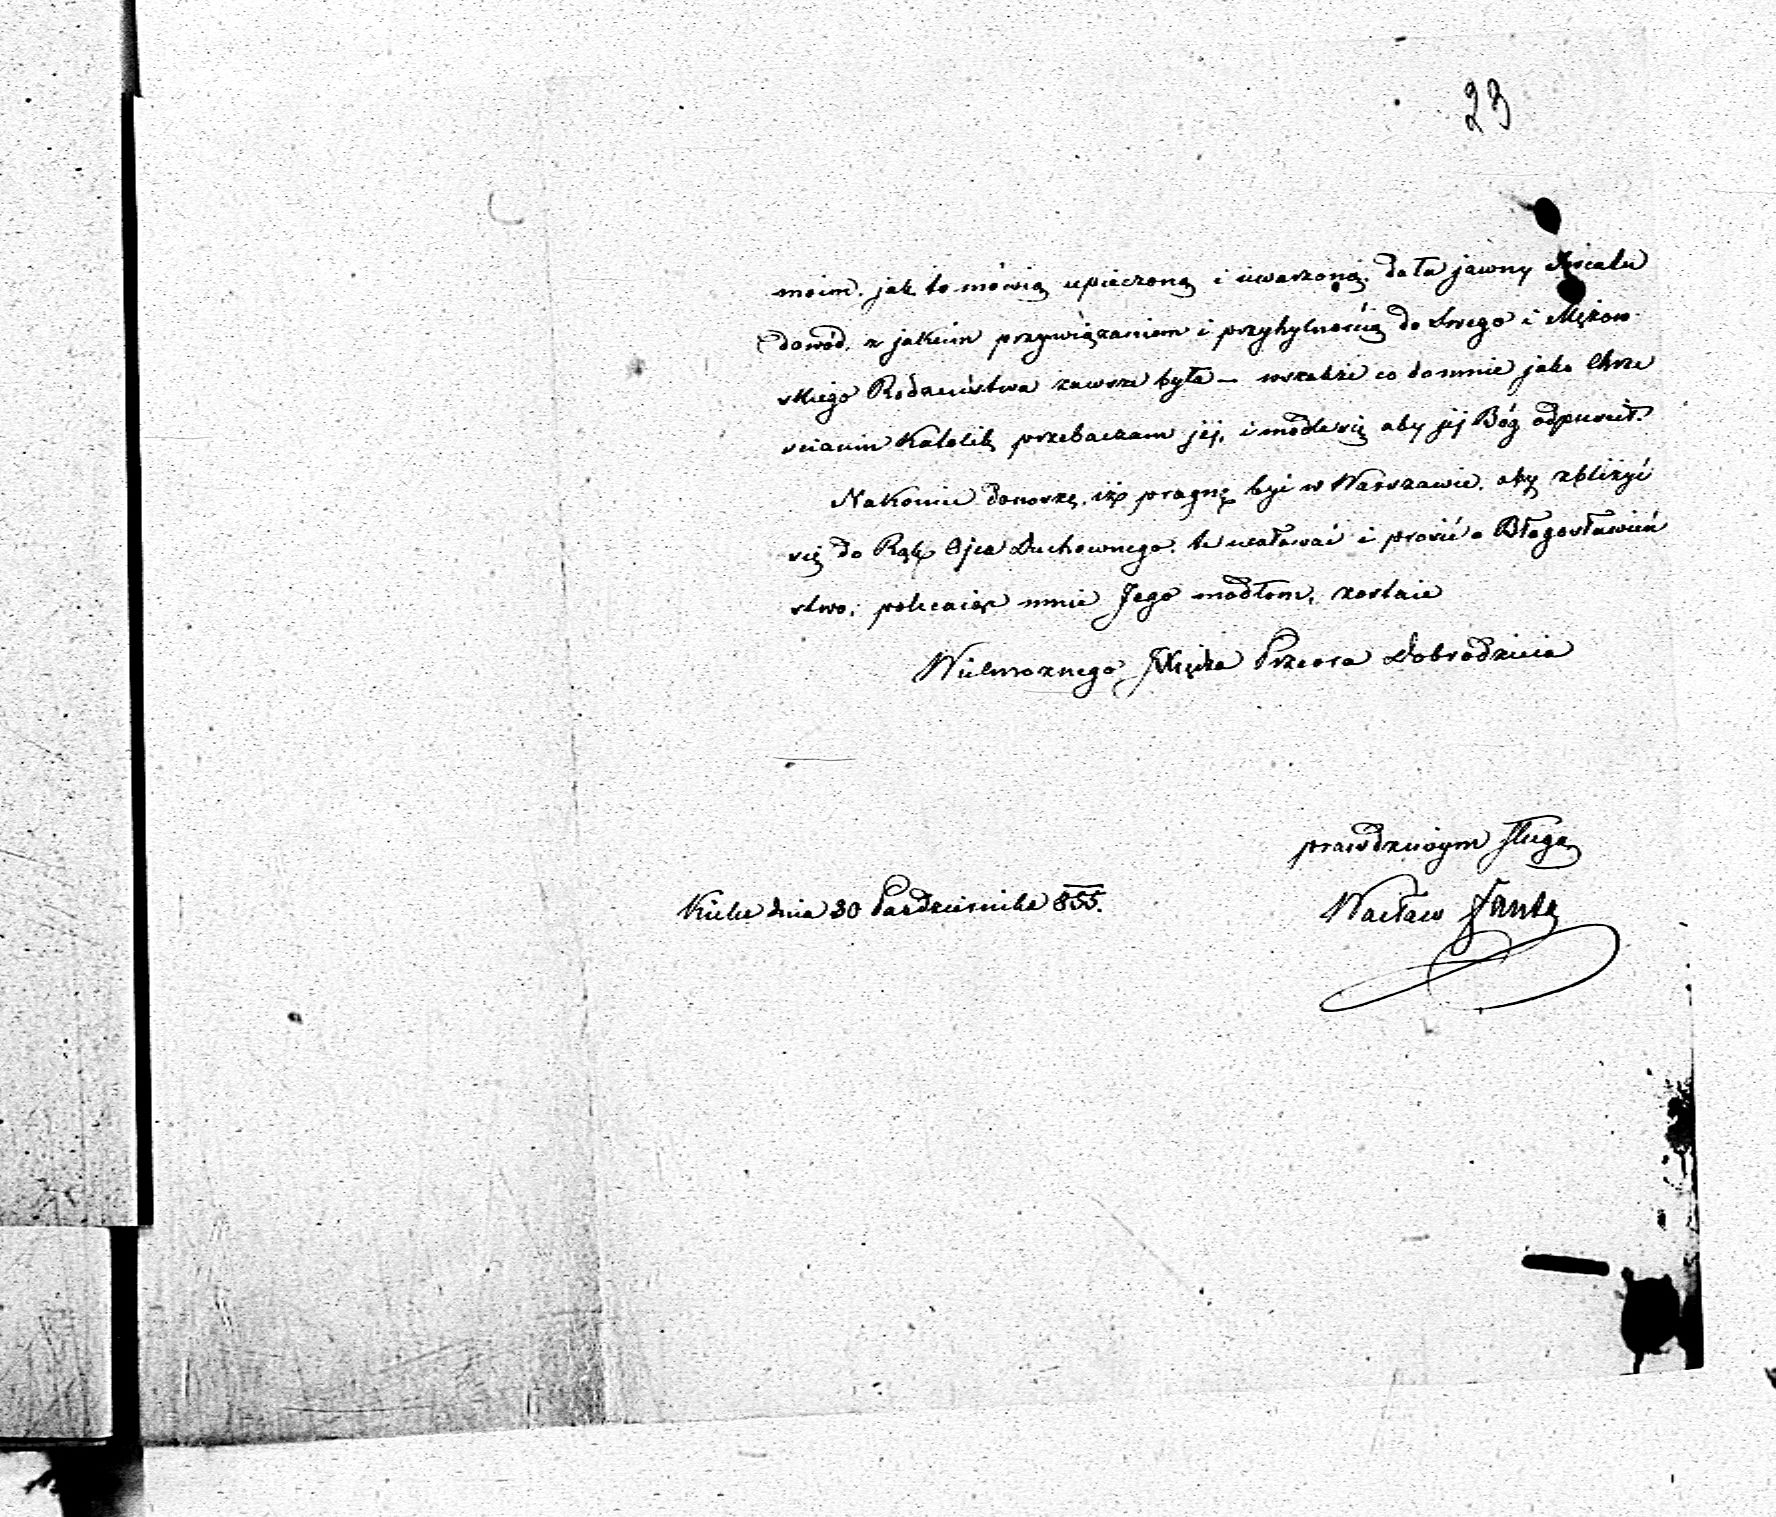 23
moim. jak to mówią upieczoną i uwarzoną. dała jawny Światu
dowód. z jakiem przywiązaniem i przyhylnością do Swego i Mężow-
skiego Rodzeństwa zawsze była — wszakże co domnie jako Chrze
scianin Katolik przebaczam jej, i modle się aby jej Bóg odpuścił.
Nakoniec donoszę, iż pragnę być w Warszawie, aby zbliżyć
się do Rąk Ojca Duchownego. te ucałować i prosić o Błogosławień
stwo, polecaiąc mnie Jego modłom, zostaie
Wielmoznego Xiędza Przeora Dobrodzieia
prawdziwym sługą
Kielce dnia 30 Pazdziernika 855.
Wacław